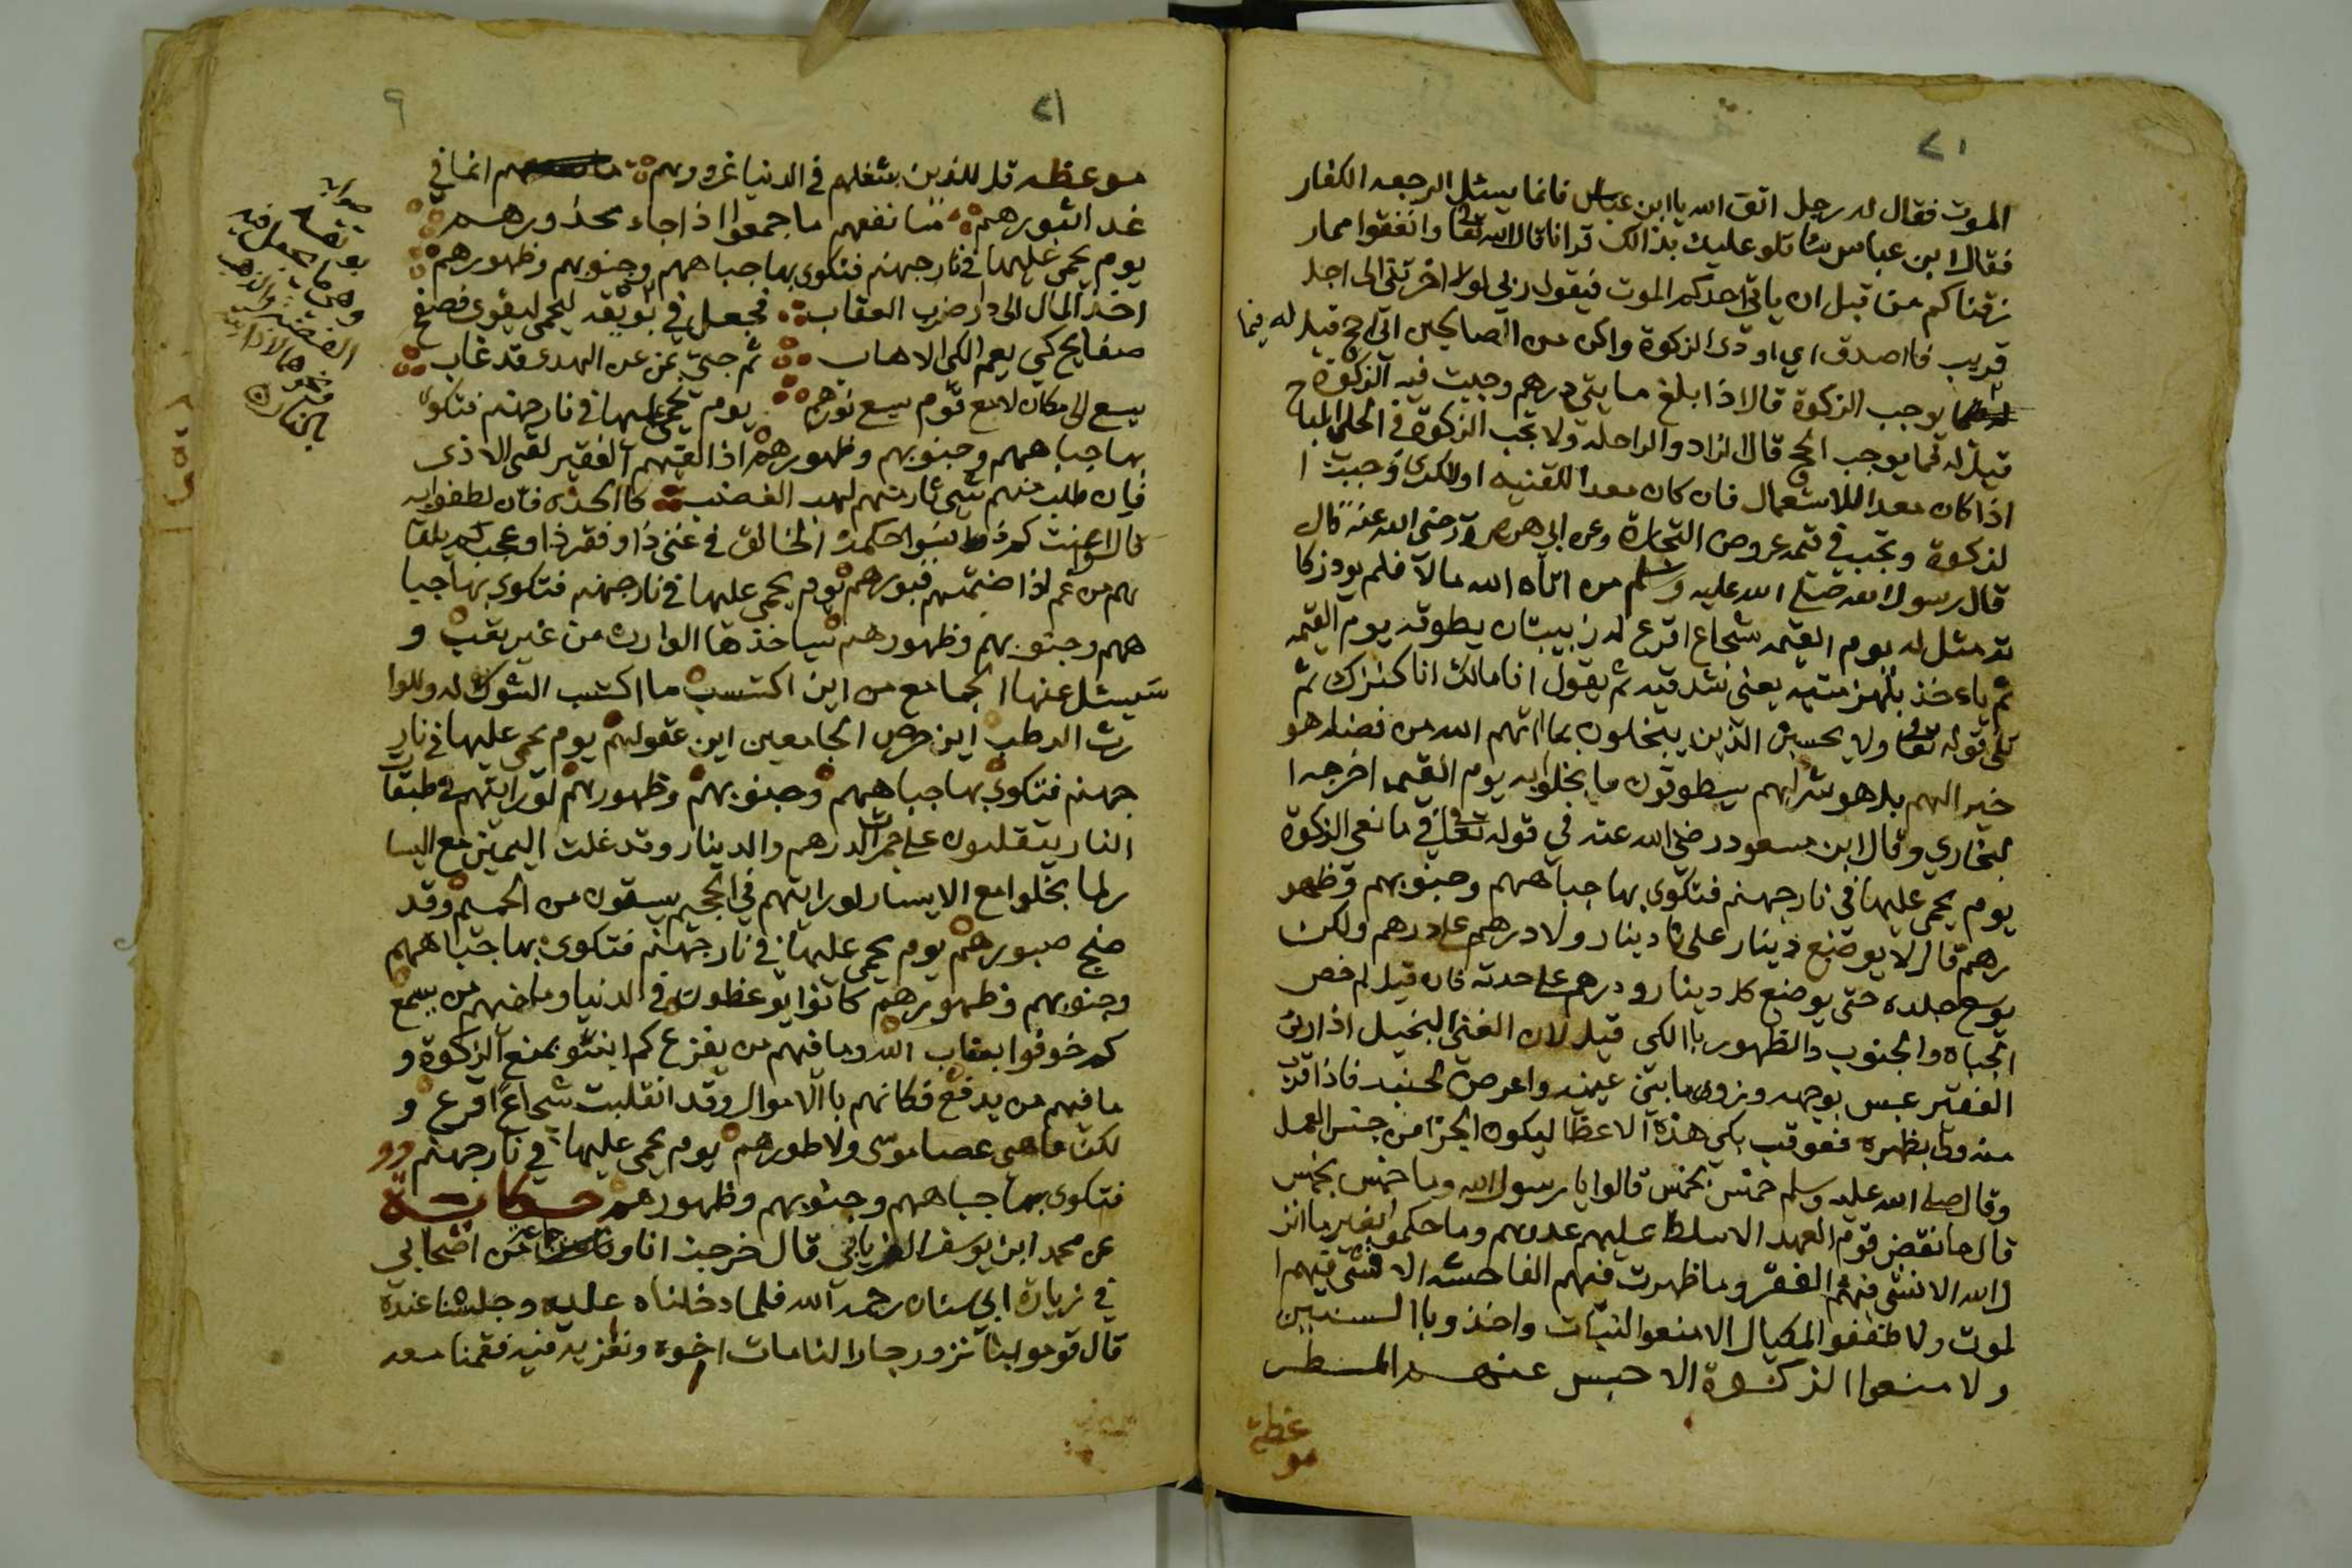 الموت فقال له رجل اتق الله يا ابن عباس فانما يسئل الرجعه الكفار
فقال ابن عباس ساتلو عليك بذالك قرانا قال الله تعالى وانفقوا مما ر
زقناكم من قبل ان ياتي احدكم الموت فيقول ربي لولا اخرتني الى اجل
قريب فاصدق اي اودي الزكوة واكن من الصالحين اي احج قيل له فيما
يوجب الزكوة قال اذا بلغ مايتي درهم وجبت فيه الزكوة
قيل له فما يوجب الحج قال الزاد والراحله ولا تجب الزكوة في الحلي المباح
اذا كان معدا للاستعمال فان كان معدا للقنيه او للكرى وجبت ا
لزكوة وتجب في قيمة عروض التجارة وعن ابي هريرة رضي الله عنه قال
قال رسول الله صلى الله عليه وسلم من اتاه الله مالا فلم يود زكا
ته مثل له يوم القيمه شجاع اقرع له زبيبتان يطوقه يوم القيمه
ثم ياءخذ بلهزمتيه يعني شدقيه ثم يقول انا مالك انا كنزك ثم
تلى قوله تعالى ولا يحسبن الذين يبخلون بما اتهم الله من فضله هو
خير الهم بل هو شر لهم سيطوقون ما بخلوا به يوم القيمه اخرجه ا
لبخاري وقال ابن مسعود رضي الله عنه في قوله تعالى في مانعي الزكوة
يوم يحمى عليها في نار جهنم فتكوى بها جباههم وجنوبهم وظهو
رهم قال لا يوضع دينار على دينار ولا درهم على درهم ولكن
يوسع جلده حتى يوضع كل دينار ودرهم على حدته فان قيل لم خص
الجباه والجنوب والظهور باالكي قيل لان الغني البخيل اذا راى
الفقير عبس بوجهه وزوى ما بين عينيه واعرض بجنبه فاذا قرب
منه ولى بظهره فعوقب بكي هذه الاعظا ليكون الجزا من جنس العمل
وقال صلى الله عليه وسلم خمس بخمس قالوا يا رسول الله وما خمس بخمس
قال ما نقض قوم العهد الا سلط عليهم عدوهم وما حكموا بغير ما انز
ل الله الا فشى فيهم الفقر وما ظهرت فيهم الفاحشه الا فشى فيهم ا
لموت ولا طففوا المكيال الا منعوا النبات واخذوا باالسنين
ولا منعوا الزكوة الا حبس عنهم المطر
موعظة
موعظه قل للذين شغلهم في الدنيا غرورهم انما في
غد اثبورهم ما نفعهم ما جمعوا اذا جاء محذورهم
يوم يحمى عليها في نار جهنم فتكوى بها جباههم وجنوبهم وظهورهم
اخذ المال الى دار ضرب العقاب فجعل في بوتقه ليحمى ليقوى فصفح
صفايح كي يعم الكي الاهاب ثم جئ بمن عن الهدى قد غاب
يسع الى مكان لا مع قوم يسع نورهم يوم يحمى عليها في نار جهنم فتكوى
بها جباههم وجنوبهم وظهورهم اذا لقيهم الفقير لقي الاذى
فان طلب منهم شي طار منهم لهب الغضب كا الجذوه فان لطفوا به
الخالق في غنى ذا وفقر ذا وعجب كم يلقا
هم من غم اذا ضمتهم قبورهم يوم يحمى عليها في نار جهنم فتكوى بها جبا
ههم وجنوبهم وظهورهم سياخذها الوارث من غير تعب و
سيسئل عنها الجامع من اين اكتسب ما اكتسب الشوك له وللوا
رث الرطب اين حرص الجامعين اين عقولهم يوم يحمى عليها في نار
جهنم فتكوى بها جباههم وجنوبهم وظهورهم لو رايتهم في طبقات
النار يتقلبون على جمرات الدرهم والدينار وقد غلت اليمين مع اليسا
ر لما بخلوا مع الايسار لو رايتهم في الجحيم يسقون من الحميم وقد
ضج صبورهم يوم يحمى عليها في نار جهنم فتكوى بها جباههم
وجنوبهم وظهورهم كانوا يوعظون في الدنيا وما فيهم من يسمع
كم خوفوا بعقاب الله وما فيهم من يفزع كم انبئو بمنع الزكوة و
ما فيهم من يدفع فكانهم باالاموال وقد انقلبت شجاعا اقرع و
لكن ما هي عصا موسى ولا طورهم يوم يحمى عليها في نار جهنم
فتكوى بها جباههم وجنوبهم وظهورهم حكاية
عن محمد ابن يوسف الفريابي قال خرجت انا وجماعة من اصحابي
في زيارة ابي سنان رحمه الله فلما دخلنا عليه وجلسنا عنده
قال قوموا بنا نزور جارا لنا مات اخوه ونعزيه فيه فقمنا معه